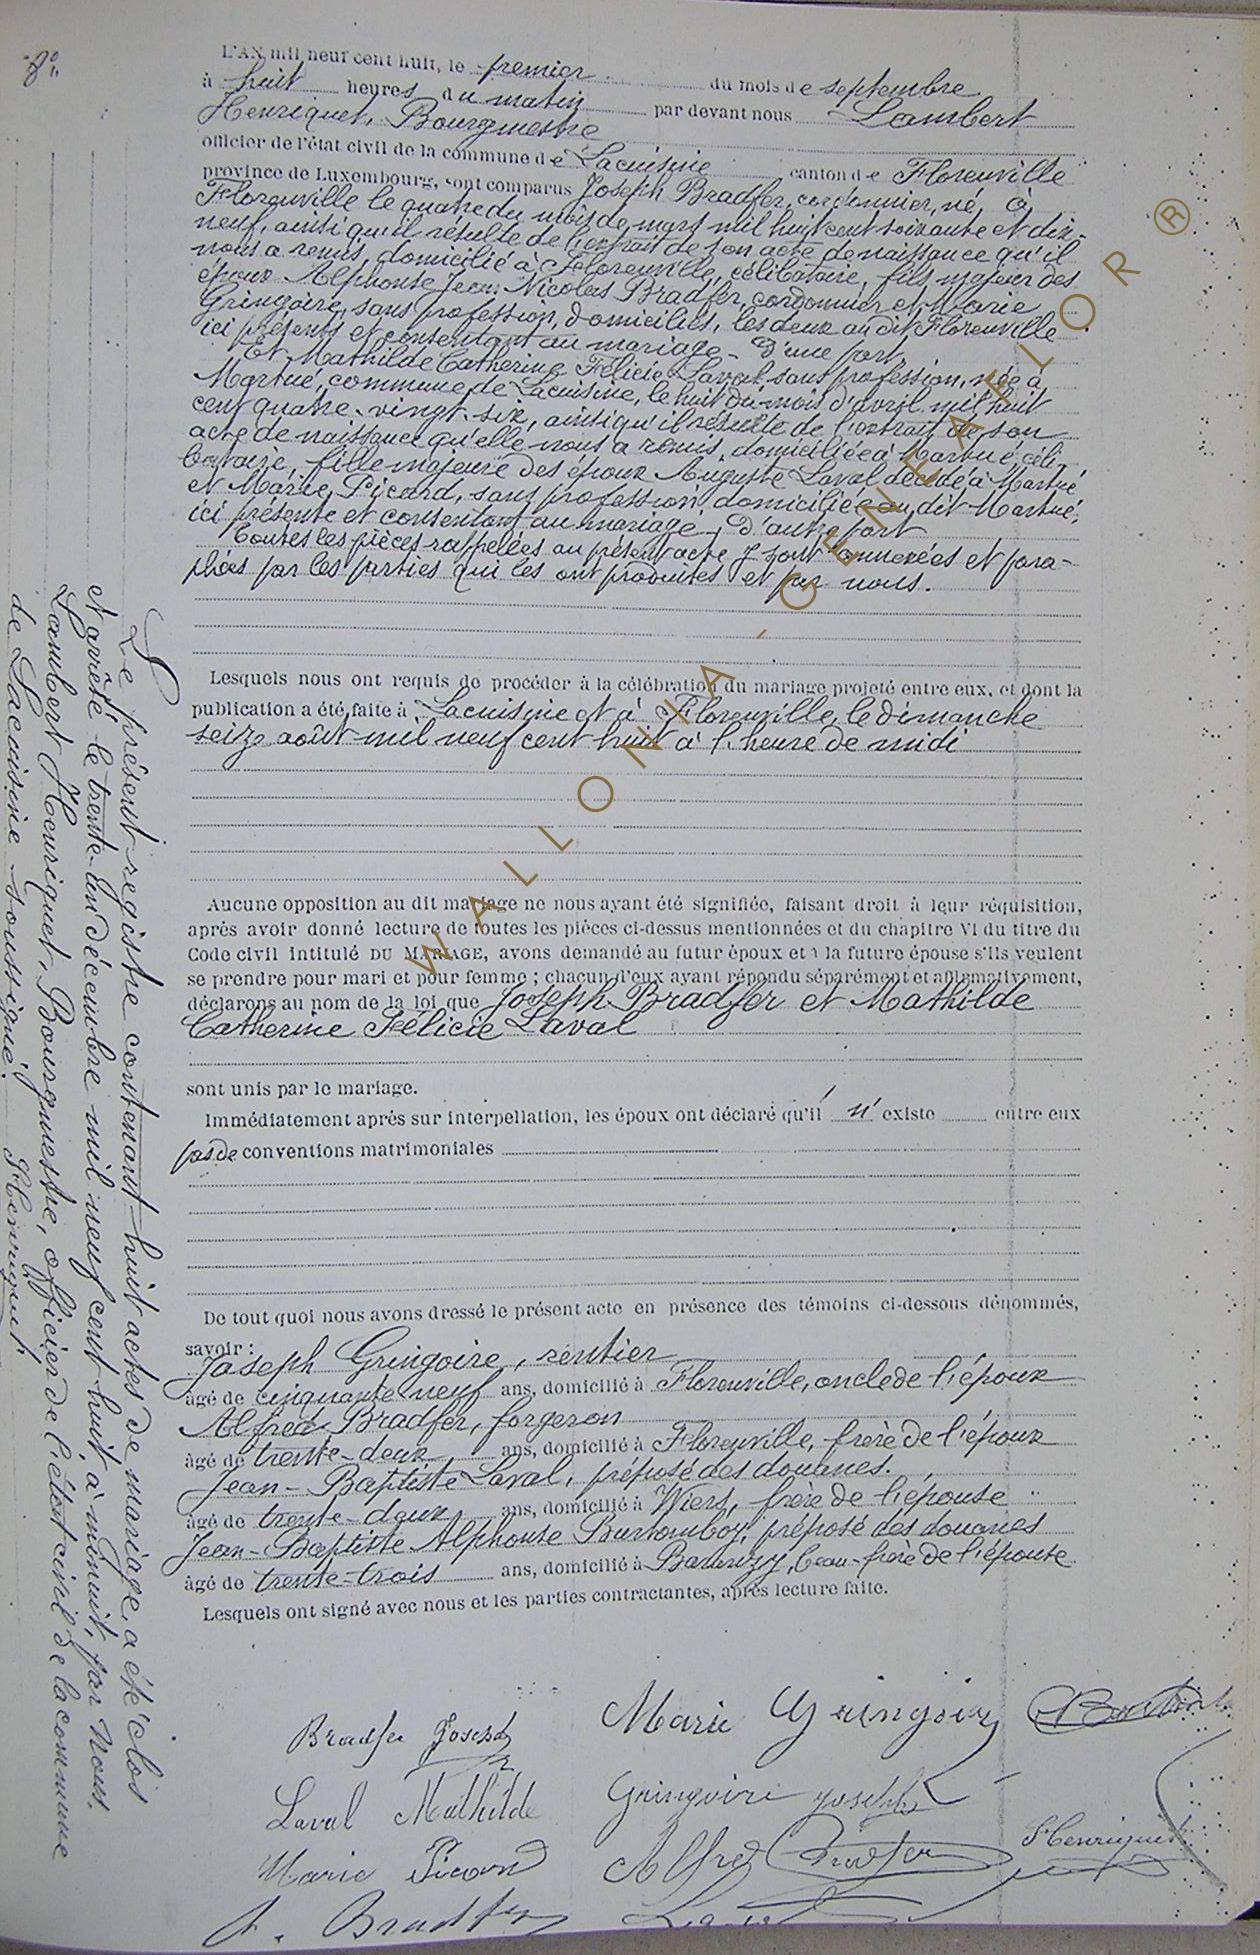 8.
L'AN mil neuf cent huit, le premier du mois de septembre
à huit heures du matin par devant nous Lambert
Henriquet, Bourgmestre
officier de l'état civil de la commune de Lacuisine canton de Florenville
province de Luxembourg, sont comparus Joseph Bradfer, cordonnier, né, à
Florenville le quatre du mois de mars mil huit cent soixante et dix-
neuf, ainsi qu'il résulte de l'extrait de son acte de naissance qu'il
nous a remis, domicilié à Florenville, célibataire, fils majeur des
époux Alphonse Jean Nicolas Bradfer, cordonnier et Marie
Gringoire, sans profession, domiciliés, les deux au dit Florenville
ici présents et consentant au mariage - D'une part,
Et Mathilde Catherine Félicie Laval sans profession, née à
Martué, commune de Lacuisine, le huit du mois d'avril mil huit
cent quatre-vingt-six, ainsi qu'il résulte de l'extrait de son
acte de naissance qu'elle nous a remis, domiciliée à Martué, céli-
bataire, fille majeure des époux Auguste Laval décédé à Martué
et Marie Picard, sans profession, domiciliée au dit Martué,
ici présente et consentant au mariage, D'autre part
Toutes les pièces rappelées au présent acte y sont annexées et para-
phées par les parties qui les ont produites et par nous.
Lesquels nous ont requis de procéder à la célébration du mariage projeté entre eux, et dont la
publication a été faite à Lacuisine et à Florenville, le dimanche
seize août mil neuf cent huit à l'heure de midi
Aucune opposition au dit mariage ne nous ayant été signifiée, faisant droit à leur réquisition,
après avoir donné lecture de toutes les pièces ci-dessus mentionnées et du chapitre VI du titre du
Code civil intitulé DU MARIAGE, avons demandé au futur époux et à la future épouse s'ils veulent
se prendre pour mari et pour femme ; chacun d'eux ayant répondu séparément et affirmativement,
déclarons au nom de la loi que Joseph Bradfer et Mathilde
Catherine Félicie Laval
sont unis par le mariage.
Immédiatement après sur interpellation, les époux ont déclaré qu'il n'existe entre eux
pas de conventions matrimoniales
De tout quoi nous avons dressé le présent acte en présence des témoins ci-dessous dénommés,
savoir :
Joseph Gringoire, rentier
âgé de cinquante neuf ans, domicilié à Florenville, oncle de l'époux
Alfred Bradfer, forgeron
âgé de trente-deux ans, domicilié à Florenville, frère de l'époux
Jean-Baptiste Laval, préposé des douanes.
âgé de trente-deux ans, domicilié à Wiers, frère de l'épouse
Jean-Baptiste Alphonse préposé des douanes
âgé de trente-trois ans, domicilié à Baranzy, beau-frère de l'épouse
Lesquels ont signé avec nous et les parties contractantes, après lecture faite.
Bradfer Joseph
Marie Gringoire
Laval Mathilde
Gringoire Joseph
Marie Picard
Alfred Bradfer
Henriquet
A. Bradfer
Laval
Le présent registre contenant huit actes de mariage, a été clos
et arrêté le trente-un décembre mil neuf cent huit, à minuit, par Nous,
Lambert Henriquet, Bourgmestre, officier de l'état civil de la commune
de Lacuisine soussigné. Henriquet
WALLONIA - GENEAFLOR ®